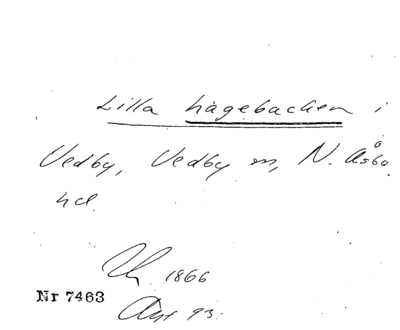 Lilla hagebacken i
Vedby, Vedby sn, N. Åsbo
hd.
1866
Nr 7463
93.